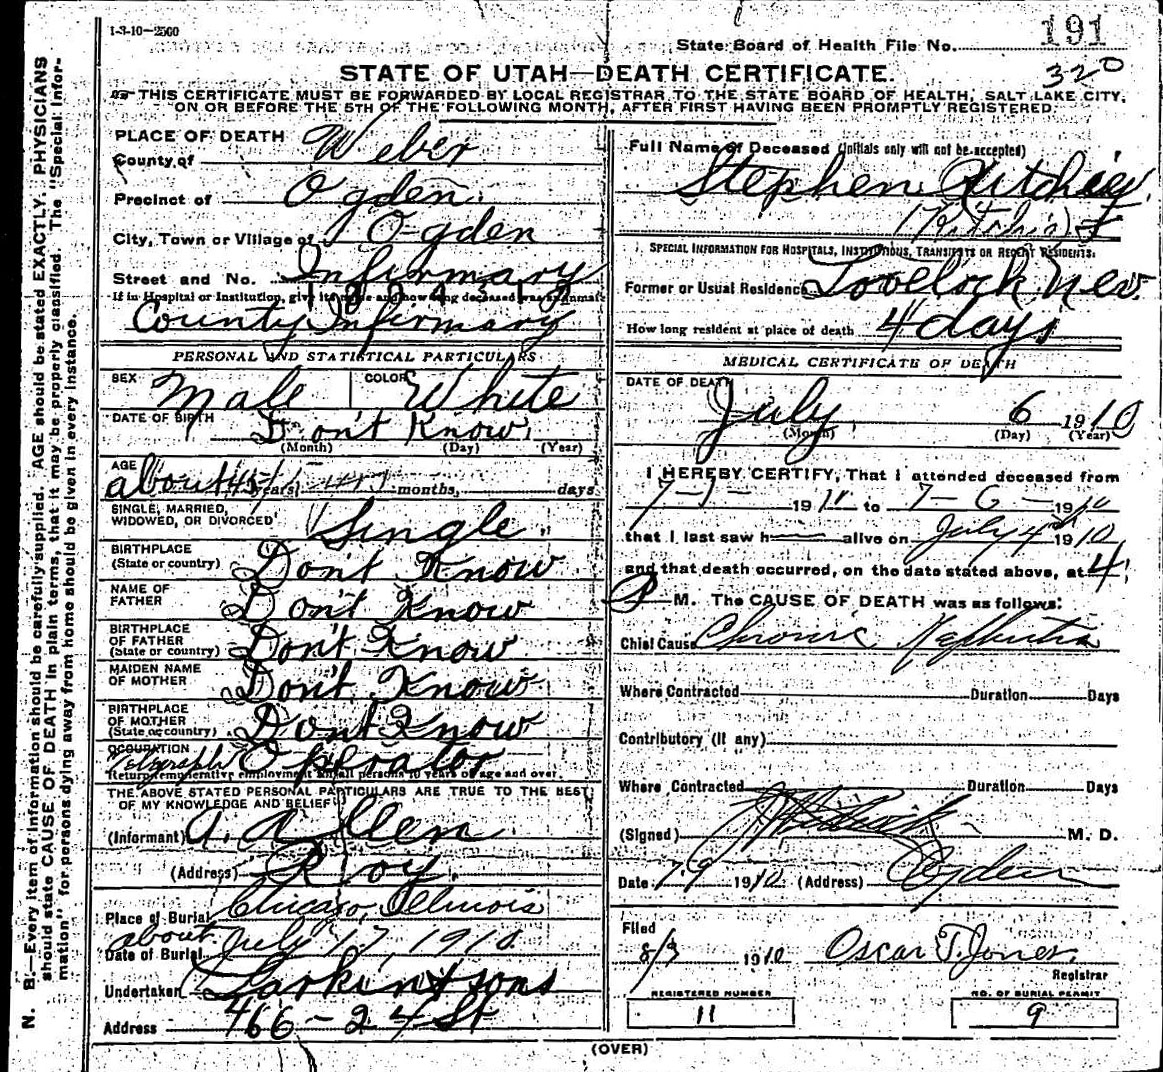 1-3-10—2500
State Board of Health File No. 191
320
STATE OF UTAH—DEATH CERTIFICATE.
THIS CERTIFICATE MUST BE FORWARDED BY LOCAL REGISTRAR TO THE STATE BOARD OF HEALTH, SALT LAKE CITY,
ON OR BEFORE THE 5TH OF THE FOLLOWING MONTH, AFTER FIRST HAVING BEEN PROMPTLY REGISTERED.
N. B.—Every item of information should be carefully supplied. AGE should be stated EXACTLY. PHYSICIANS
should state CAUSE OF DEATH in plain terms, that it may be properly classified. The "Special Infor-
mation" for persons dying away from home should be given in every instance.
PLACE OF DEATH
County of Weber
Precinct of Ogden
City, Town or Village of Ogden
Street and No. Infirmary
If in Hospital or Institution, give its name and how long deceased was an inmate
County Infirmary
PERSONAL AND STATISTICAL PARTICULARS
SEX Male COLOR White
DATE OF BIRTH Don't Know
(Month) (Day) (Year)
AGE about 45 years months, days
SINGLE, MARRIED,
WIDOWED, OR DIVORCED Single
BIRTHPLACE
(State or country) Don't Know
NAME OF
FATHER Don't Know
BIRTHPLACE
OF FATHER
(State or country) Don't Know
MAIDEN NAME
OF MOTHER Don't Know
BIRTHPLACE
OF MOTHER
(State or country) Don't Know
OCCUPATION
Telegraph Operator
Return remunerative employment of all persons 10 years of age and over.
THE ABOVE STATED PERSONAL PARTICULARS ARE TRUE TO THE BEST
OF MY KNOWLEDGE AND BELIEF
(Informant) A. Allen
(Address) Roy.
Place of Burial Chicago, Illinois
about
Date of Burial July 17, 1910
Undertaker Larkin & sons
Address 466-24 St
Full Name of Deceased (Initials only will not be accepted)
Stephen Ritchey
(Ritchie)
SPECIAL INFORMATION FOR HOSPITALS, INSTITUTIONS, TRANSIENTS OR RECENT RESIDENTS:
Former or Usual Residence Lovelock Nev.
How long resident at place of death 4 days
MEDICAL CERTIFICATE OF DEATH
DATE OF DEATH
July 6 1910
(Month) (Day) (Year)
I HEREBY CERTIFY, That I attended deceased from
19 to 7-6-1910
that I last saw h alive on July 4 1910
and that death occurred, on the date stated above, at 4
P M. The CAUSE OF DEATH was as follows:
Chief Cause Chronic Nephritis
Where Contracted Duration Days
Contributory (if any)
Where Contracted Duration Days
(Signed) M. D.
Date 7/9 1910 (Address) Ogden
Filed
8/3 1910 Oscar T. Jones
Registrar
REGISTERED NUMBER NO. OF BURIAL PERMIT
11 9
(OVER)